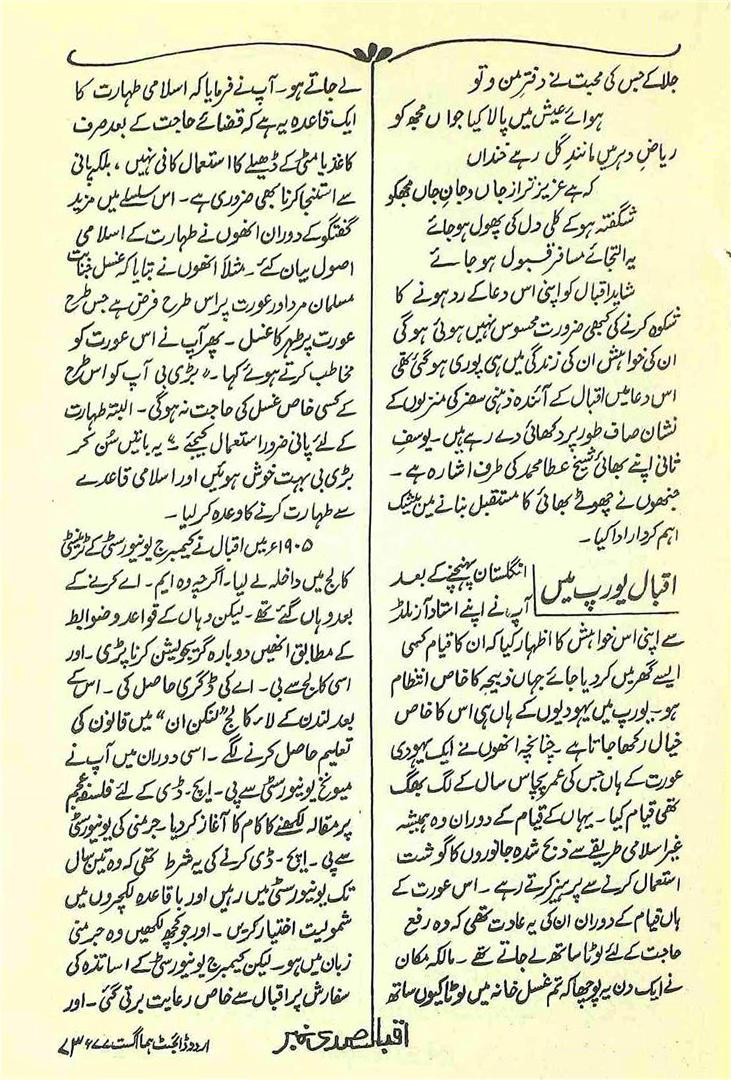 جلا کے جس کی محبت نے دفتر من و تو
ہوائے عیش میں پالا کیا جواں مجھ کو
ریاض دہر میں مانند گل رہے خنداں
کہ ہے عزیز تر از جاں وہ جان جاں مجھکو
شگفتہ ہو کے کلی دل کی پھول ہو جائے
یہ التجائے مسافر قبول ہو جائے
شاید اقبال کو اپنی اس دعا کے رد ہونے کا
شکوہ کرنے کی کبھی ضرورت محسوس نہیں ہوئی ہوگی
ان کی خواہش ان کی زندگی میں ہی پوری ہو گئی تھی
اس دعا میں اقبال کے آئندہ ذہنی سفر کی منزلوں کے
نشان صاف طور پر دکھائی دے رہے ہیں۔ یوسف
ثانی اپنے بھائی شیخ عطا محمد کی طرف اشارہ ہے۔
جنھوں نے چھوٹے بھائی کا مستقبل بنانے میں بیشک
اہم کردار ادا کیا۔
اقبال یورپ میں
انگلستان پہنچنے کے بعد
آپ نے اپنے استاد آرنلڈ
سے اپنی اس خواہش کا اظہار کیا کہ ان کا قیام کسی
ایسے گھر میں کر دیا جائے جہاں ذبیحہ کا خاص انتظام
ہو۔ یورپ میں یہودیوں کے ہاں ہی اس کا خاص
خیال رکھا جاتا ہے۔ چنانچہ انھوں نے ایک یہودی
عورت کے ہاں جس کی عمر پچاس سال کے لگ بھگ
تھی قیام کیا۔ یہاں کے قیام کے دوران وہ ہمیشہ
غیر اسلامی طریقے سے ذبح شدہ جانوروں کا گوشت
استعمال کرنے سے پرہیز کرتے رہے۔ اس عورت کے
ہاں قیام کے دوران ان کی یہ عادت تھی کہ وہ رفع
حاجت کے لئے لوٹا ساتھ لے جاتے تھے۔ مالکہ مکان
نے ایک دن یہ پوچھا کہ تم غسل خانہ میں لوٹا کیوں ساتھ
لے جاتے ہو۔ آپ نے فرمایا کہ اسلامی طہارت کا
ایک قاعدہ یہ ہے کہ قضائے حاجت کے بعد صرف
کاغذ یا مٹی کے ڈھیلے کا استعمال کافی نہیں، بلکہ پانی
سے استنجا کرنا بھی ضروری ہے۔ اس سلسلے میں مزید
گفتگو کے دوران انھوں نے طہارت کے اسلامی
اصول بیان کئے۔ مثلاً انھوں نے بتایا کہ غسل جنابت
مسلمان مرد اور عورت پر اس طرح فرض ہے جس طرح
عورت پر طہر کا غسل۔ پھر آپ نے اس عورت کو
مخاطب کرتے ہوئے کہا۔ "بڑی بی آپ کو اس طرح
کے کسی خاص غسل کی حاجت نہ ہوگی۔ البتہ طہارت
کے لئے پانی ضرور استعمال کیجئے۔" یہ باتیں سُن کر
بڑی بی بہت خوش ہوئیں اور اسلامی قاعدے
سے طہارت کرنے کا وعدہ کر لیا۔
۱۹۰۵ء میں اقبال نے کیمبرج یونیورسٹی کے ٹرینٹی
کالج میں داخلہ لے لیا۔ اگرچہ وہ ایم۔ اے کرنے کے
بعد وہاں گئے تھے۔ لیکن وہاں کے قواعد و ضوابط
کے مطابق انھیں دوبارہ گریجویشن کرنا پڑی۔ اور
اسی کالج سے بی۔ اے کی ڈگری حاصل کی۔ اس کے
بعد لندن کے لاء کالج "لنکن ان" میں قانون کی
تعلیم حاصل کرنے لگے۔ اسی دوران میں آپ نے
میونخ یونیورسٹی سے پی۔ ایچ۔ ڈی کے لئے فلسفۂ عجم
پر مقالہ لکھنے کا کام کا آغاز کر دیا۔ جرمنی کی یونیورسٹی
سے پی۔ ایچ۔ ڈی کرنے کی یہ شرط تھی کہ وہ تین سال
تک یونیورسٹی میں رہیں اور باقاعدہ لکچروں میں
شمولیت اختیار کریں۔ اور جو کچھ لکھیں وہ جرمنی
زبان میں ہو۔ لیکن کیمبرج یونیورسٹی کے اساتذہ کی
سفارش پر اقبال سے خاص رعایت برتی گئی۔ اور
اقبال صدی نمبر
اردو ڈائجسٹ ہما اگست ۷۷ء ۷۳